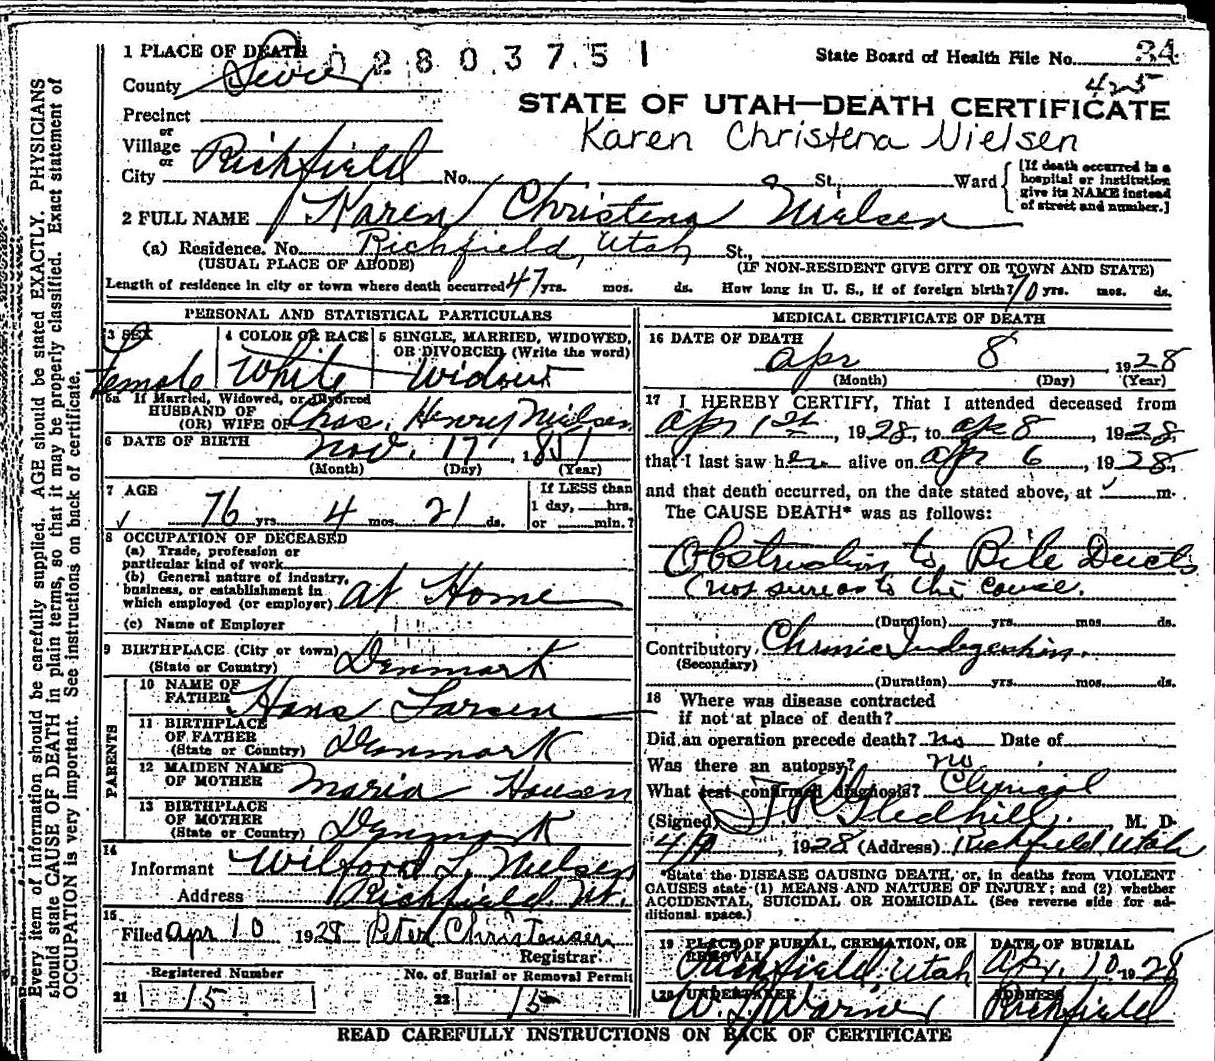 1 PLACE OF DEATH 0280375 1
State Board of Health File No. 34
County Sevier 425
STATE OF UTAH—DEATH CERTIFICATE
Precinct
Karen Christena Nielsen
or
Village
or
City Richfield No. St., Ward
[If death occurred in a
hospital or institution
give its NAME instead
of street and number.]
2 FULL NAME Karen Christena Nielsen
(a) Residence. No. Richfield, Utah St.,
(USUAL PLACE OF ABODE) (IF NON-RESIDENT GIVE CITY OR TOWN AND STATE)
Length of residence in city or town where death occurred 47 yrs. mos. ds. How long in U. S., if of foreign birth? 70 yrs. mos. ds.
PERSONAL AND STATISTICAL PARTICULARS
3 SEX
Female
4 COLOR OR RACE
White
5 SINGLE, MARRIED, WIDOWED,
OR DIVORCED (Write the word)
Widow
5a If Married, Widowed, or Divorced
HUSBAND OF
(OR) WIFE OF Chas. Henry Nielsen
6 DATE OF BIRTH Nov. 17, 1851
(Month) (Day) (Year)
7 AGE
76 yrs. 4 mos. 21 ds.
If LESS than
1 day, hrs.
or min.?
8 OCCUPATION OF DECEASED
(a) Trade, profession or
particular kind of work
(b) General nature of industry,
business, or establishment in
which employed (or employer) at Home
(c) Name of Employer
9 BIRTHPLACE (City or town)
(State or Country) Denmark
PARENTS
10 NAME OF
FATHER Hans Larsen
11 BIRTHPLACE
OF FATHER
(State or Country) Denmark
12 MAIDEN NAME
OF MOTHER Maria Hansen
13 BIRTHPLACE
OF MOTHER
(State or Country) Denmark
14
Informant Wilford L. Nielsen
Address Richfield Ut.
15
Filed Apr 10 1928 Peter Christensen
Registrar
Registered Number No. of Burial or Removal Permit
21 15 22 15
MEDICAL CERTIFICATE OF DEATH
16 DATE OF DEATH
Apr 8, 1928
(Month) (Day) (Year)
17 I HEREBY CERTIFY, That I attended deceased from
Apr 1st, 1928, to Apr 8, 1928,
that I last saw her alive on Apr 6, 1928,
and that death occurred, on the date stated above, at m.
The CAUSE DEATH* was as follows:
Obstruction to Bile Ducts
(not sure as to the cause.
(Duration) yrs. mos. ds.
Contributory Chronic Indigestion.
(Secondary)
(Duration) yrs. mos. ds.
18 Where was disease contracted
if not at place of death?
Did an operation precede death? No Date of
Was there an autopsy? no
What test confirmed diagnosis? Clinical
(Signed) Gledhill. M. D.
1928 (Address) Richfield Utah
*State the DISEASE CAUSING DEATH, or, in deaths from VIOLENT
CAUSES state (1) MEANS AND NATURE OF INJURY; and (2) whether
ACCIDENTAL, SUICIDAL OR HOMICIDAL. (See reverse side for ad-
ditional space.)
19 PLACE OF BURIAL, CREMATION, OR
REMOVAL
Richfield Utah
DATE OF BURIAL
Apr. 10 1928
20 UNDERTAKER
W. L. Warner
ADDRESS
Richfield
READ CAREFULLY INSTRUCTIONS ON BACK OF CERTIFICATE
Every item of information should be carefully supplied. AGE should be stated EXACTLY. PHYSICIANS
should state CAUSE OF DEATH in plain terms, so that it may be properly classified. Exact statement of
OCCUPATION is very important. See instructions on back of certificate.